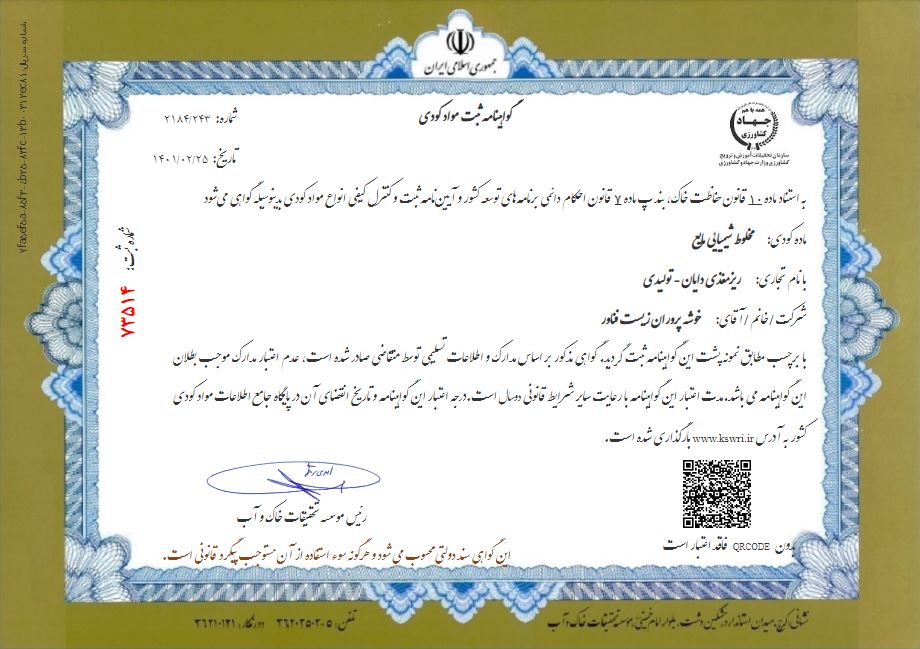 جمهوری اسلامی ایران
همه با هم
جهاد
کشاورزی
سازمان تحقیقات، آموزش و ترویج
کشاورزی وزارت جهاد کشاورزی
گواهینامه ثبت مواد کودی
شماره: ۲۱۸۴/۲۴۳
تاریخ: ۱۴۰۱/۰۲/۲۵
به استناد ماده ۱۰ قانون حفاظت خاک، بند پ ماده ۷ قانون احکام دائمی برنامه های توسعه کشور و آیین نامه ثبت و کنترل کیفی انواع مواد کودی بدینوسیله گواهی می شود
ماده کودی: مخلوط شیمیایی مایع
با نام تجاری: ریزمغذی دایان - تولیدی
شرکت / خانم / آقای: خوشه پروران زیست فناور
شماره ثبت: ۷۳۵۱۴
با برچسب مطابق نمونه پشت این گواهینامه ثبت گردید. گواهی مذکور بر اساس مدارک و اطلاعات تسلیمی توسط متقاضی صادر شده است، عدم اعتبار مدارک موجب بطلان
این گواهینامه می باشد. مدت اعتبار این گواهینامه با رعایت سایر شرایط قانونی دوسال است. درجه اعتبار این گواهینامه و تاریخ انقضای آن در پایگاه جامع اطلاعات مواد کودی
کشور به آدرس www.kswri.ir بارگذاری شده است.
رئیس موسسه تحقیقات خاک و آب
بدون QRCODE فاقد اعتبار است
این گواهی سند دولتی محسوب می شود و هرگونه سوء استفاده از آن مستوجب پیگرد قانونی است.
نشانی: کرج، میدان استاندارد، مشکین دشت، بلوار امام خمینی، موسسه تحقیقات خاک و آب
تلفن: ۵-۳۶۲۰۲۵۰۲ دورنگار: ۳۶۲۱۰۱۲۱